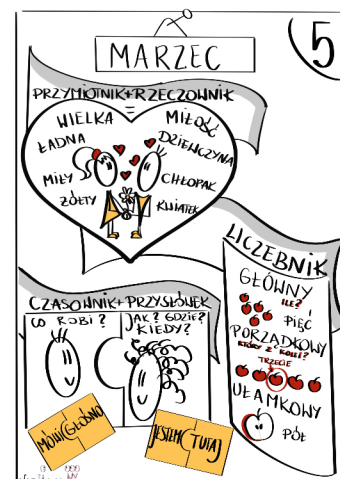 MARZEC
5
PRZYMIOTNIK+RZECZOWNIK
=
WIELKA MIŁOŚĆ
ŁADNA DZIEWCZYNA
MIŁY CHŁOPAK
ŻÓŁTY KWIATEK
CZASOWNIK+PRZYSŁÓWEK
CO ROBI?
JAK? GDZIE?
KIEDY?
MÓWI GŁOŚNO
JESTEM TUTAJ
LICZEBNIK
GŁÓWNY
ILE?
PIĘĆ
PORZĄDKOWY
KTÓRY Z KOLEI?
TRZECIE
UŁAMKOWY
PÓŁ